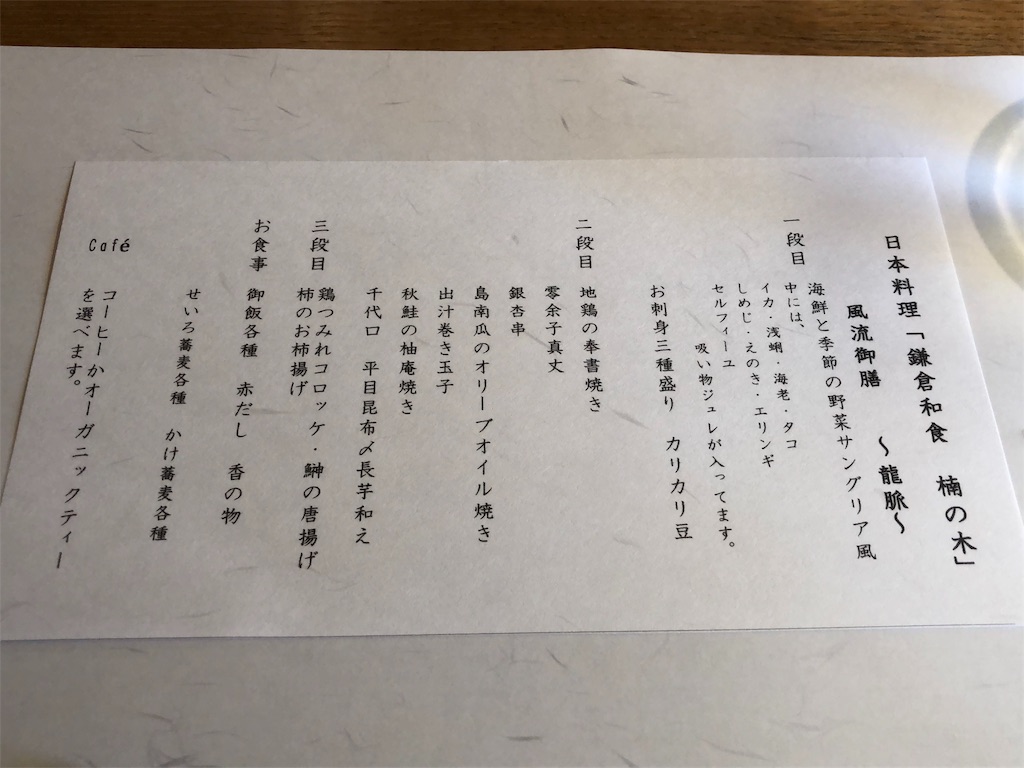 日本料理「鎌倉和食　楠の木」
風流御膳　～龍脈～
一段目
海鮮と季節の野菜サングリア風
中には、
イカ・浅蜊・海老・タコ
しめじ・えのき・エリンギ
セルフィーユ　吸い物ジュレが入ってます。
お刺身三種盛り　カリカリ豆
二段目
地鶏の奉書焼き
零余子真丈
銀杏串
島南瓜のオリーブオイル焼き
出汁巻き玉子
秋鮭の柚庵焼き
千代口　平目昆布〆長芋和え
三段目
鶏つみれコロッケ・鰰の唐揚げ
柿のお柿揚げ
お食事
御飯各種　赤だし　香の物
せいろ蕎麦各種　かけ蕎麦各種
Café
コーヒーかオーガニックティー
を選べます。